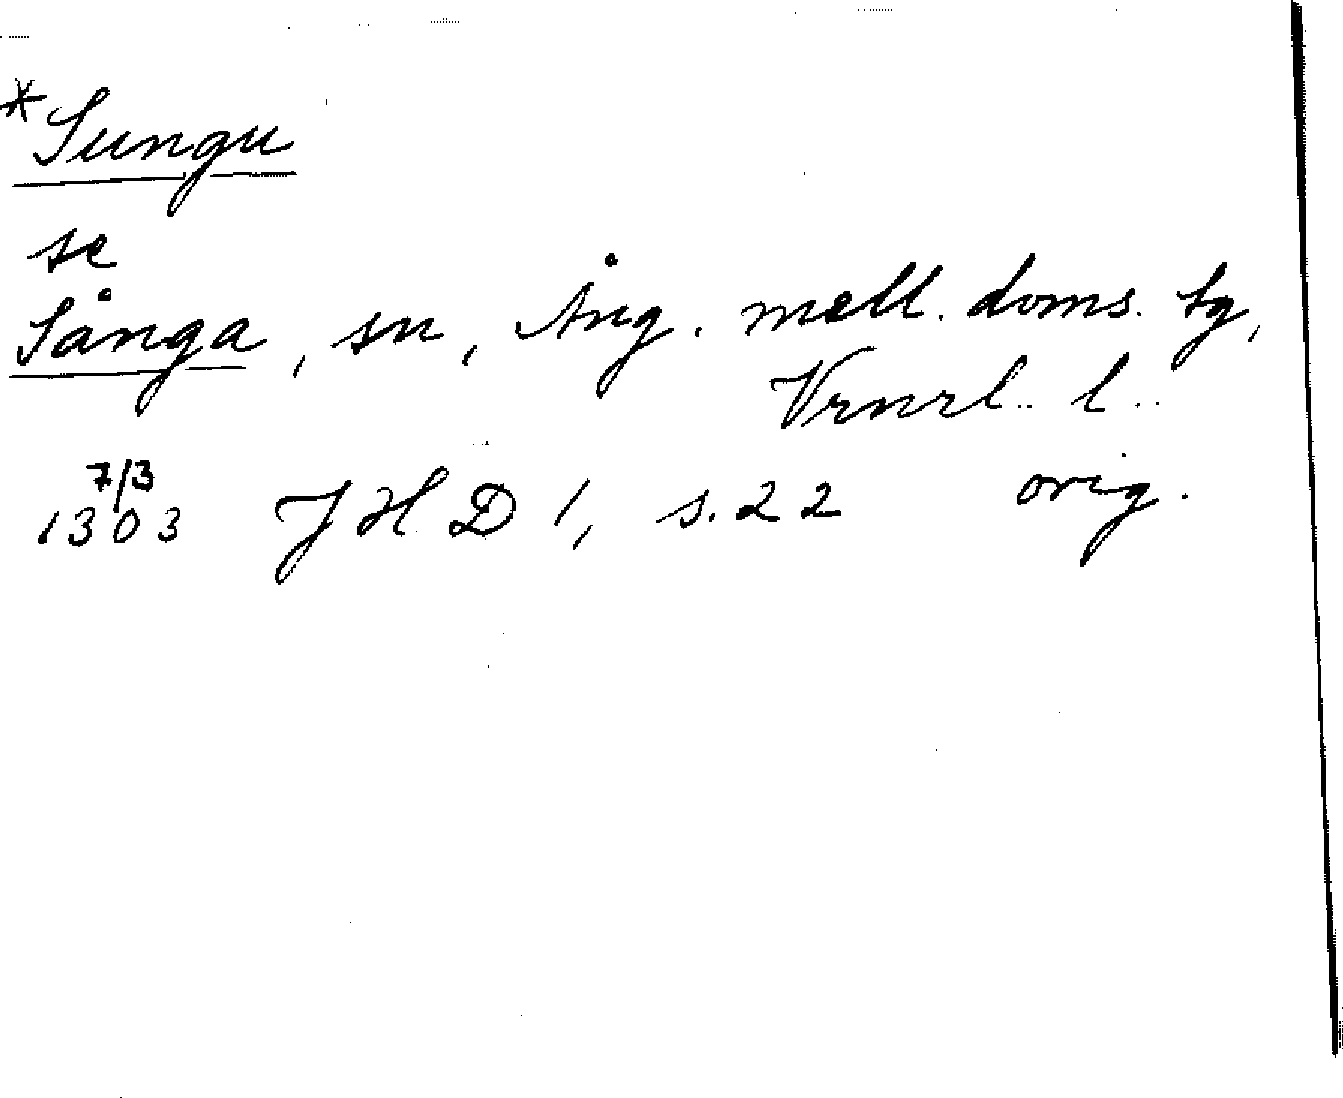 *Sungu
se
Sånga, sn, Ång. mell. doms. tg,
Vrnrl.. l..
7/3
1303 JHD 1, s. 22 orig.